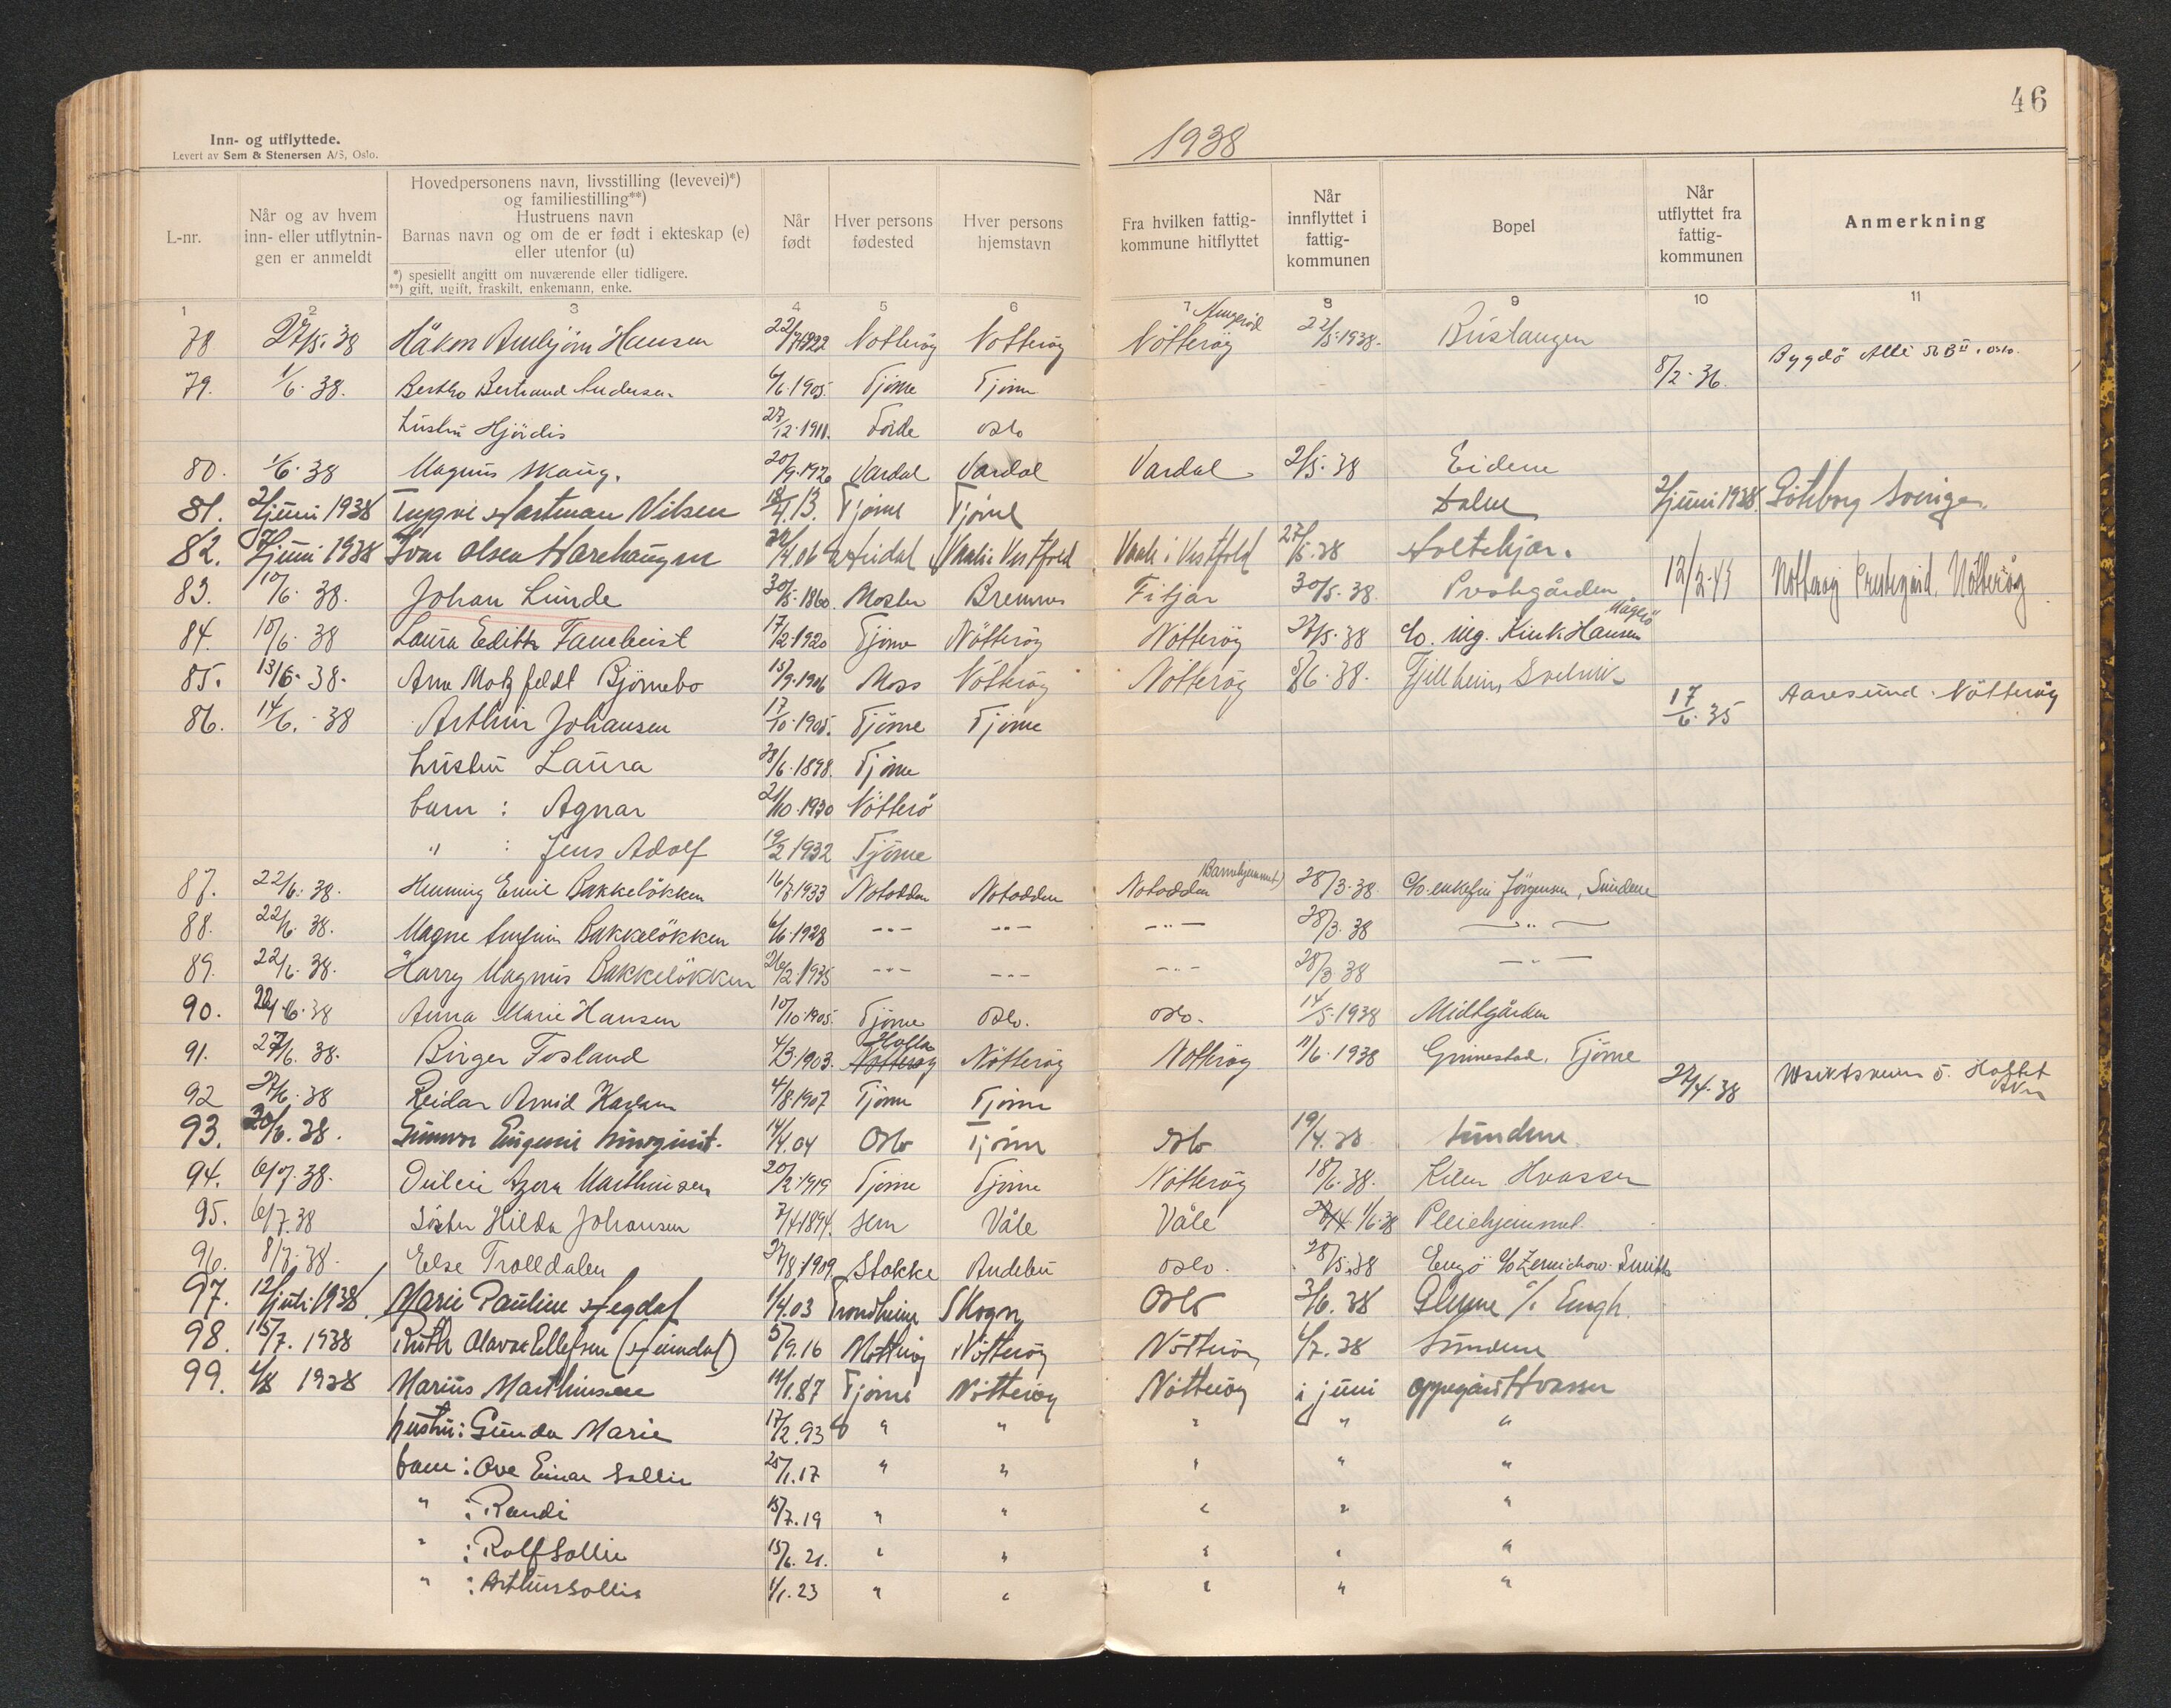 46
Inn- og utflyttede.
Levert av Sem & Stenersen A/S, Oslo.
1938
L-nr.
Når og av hvem inn- eller utflytnin- gen er anmeldt
Hovedpersonens navn, livsstilling (levevei)*)
og familiestilling**)
Hustruens navn
Barnas navn og om de er født i ekteskap (e)
eller utenfor (u)
*) spesiellt angitt om nuværende eller tidligere.
**) gift, ugift, fraskilt, enkemann, enke.
Når født
Hver persons fødested
Hver persons hjemstavn
Fra hvilken fattig- kommune hitflyttet
Når innflyttet i fattig- kommunen
Bopel
Når utflyttet fra fattig- kommunen
Anmerkning
1 2 3 4 5 6 7 8 9 10 11
78 27/5. 38 Håkon Hansen 22/7 1922 Nötteröy Nötteröy Nötteröy 22/5. 1938.
79. 1/6. 38. Bertrand Andersen 6/6. 1905. Tjöme Tjöme 8/2. 36. Bygdö Allé Oslo.
hustru Hjördis 27/12. 1911. Förde Oslo
80. 1/6. 38 Magnus Skaug. 20/9. 1926 Vardal Vardal Vardal 2/5. 38 Eidene
81. 2/juni 1938 Trygve Hartman Nilsen 18/4. 13. Tjöme Tjöme 2/juni 1938. Göteborg Sverige.
82. juni 1938 Ivar Olsen 06 Vaale i Vestfold Vaale i Vestfold 27/5. 38 Holtekjær.
83. 10/6. 38. Johan Lunde 30/5. 1860. Moster Bremnes Fitjar 30/5. 38. Prestgården 12/2. Nötteröy Prestegård. Nötteröy
84. 10/6. 38 Laura Edith 17/2. 1920 Tjöme Nötteröy Nötteröy 27/5. 38 c/o. ing. Kink Hansen Mågerö
85. 13/6. 38. Motzfeldt Björnebo 15/9. 1906 Moss Nötteröy Nötteröy 8/6. 38. Fjellheim,
86. 14/6. 38 Arthur Johansen 17/10. 1905. Tjöme Tjöme 17/6. 35 Aaresund. Nötteröy
hustru Laura 1898. Tjöme
barn : Agnar 21/10. 1930 Nötterö
" : Jens Adolf 19/2 1932 Tjöme
87. 22/6. 38. Henning Emil Bakkelökken 16/7 1933 Notodden Notodden Notodden (Barnehjemmet) 28/3. 38. c/o. enkefru Jörgensen, Sundene
88. 22/6. 38. Magne Bakkelökken 6/6. 1928 -"- -"- -"- 28/3. 38 -"-
89. 22/6. 38. Harry Magnus Bakkelökken 26/2. 1935 -"- -"- -"- 28/3 38 -"-
90. 38 Anna Marie Hansen 10/10. 1905. Tjöme Oslo. Oslo. 14/5. 1938 Midtgården
91. 27/6. 38. Birger Fosland 4/3. 1903. Nötteröy Nötteröy 11/6. 1938 Grimestad. Tjöme
92 27/6. 38 Reidar Arvid Karlsen 4/8. 1907 Tjöme Tjöme 27/4. 38
93. 30/6. 38. Gunvor Eugenie 14/4. 04 Oslo Tjöme Oslo 19/4. 38 Sundene.
94. 6/7. 38. Marthinsen 20/2. 1919 Tjöme Tjöme Nötteröy 18/6. 38. Kilen Hvasser
95. 6/7. 38 Söster Hilda Johansen 7/4. 1894. Sem Våle Våle 1/6. 38 Pleiehjemmet.
96. 8/7. 38. Else Trolldalen 27/8. 1909. Stokke Andebu Oslo. 28/5. 38 Engö c/o Smith
97. 12/juli 1938. Marie Pauline 1/4. 03 Trondheim Skogn Oslo 3/6. 38 c/o Engh.
98. 15/7. 1938 Ruth Ellefsen 5/9. 16 Nötteröy Nötteröy Nötteröy 1/7. 38 Sundene
99. 4/8 1938 Marius Marthinsen 11/1. 87 Tjöme Nötteröy Nötteröy i juni Oppegård Hvasser
hustru: Gunda Marie 17/2. 93 " " " " "
barn : Ove Einar Sollie 25/1. 17 " " " " "
" : Randi 15/7. 19 " " " " "
" : Rolf Sollie 15/6. 21. " " " " "
" : Arthur Sollie 1/1. 23 " " " " "